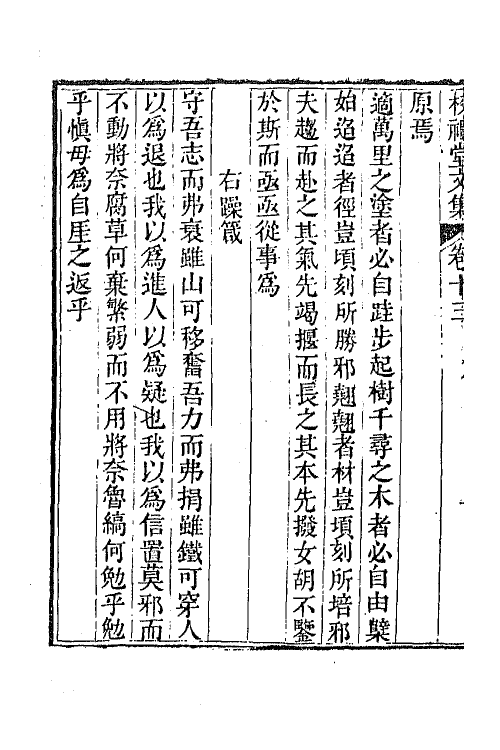 校禮堂文集 卷十三
原焉
適萬里之塗者必自跬步起樹千尋之木者必自由櫱
始迢迢者徑豈頃刻所勝邪翹翹者材豈頃刻所培邪
夫趨而赴之其氣先竭揠而長之其本先撥女胡不鑒
於斯而亟亟從事為
右躁箴
守吾志而弗衰雖山可移奮吾力而弗捐雖鐵可穿人
以為退也我以為進人以為疑也我以為信置莫邪而
不動將奈腐草何棄繁弱而不用將奈魯縞何勉乎勉
乎慎毋為自厓之返乎